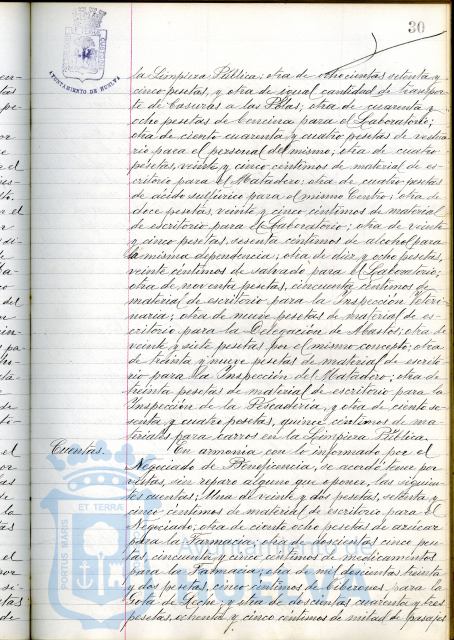 30
AYUNTAMIENTO DE HUELVA
la Limpieza Pública; otra de ochocientas setenta y
cinco pesetas, y otra de igual cantidad de transpor-
te de basuras a las Pblas; otra de cuarenta y
ocho pesetas de bencina para el Laboratorio;
otra de ciento cuarenta y cuatro pesetas de vestua-
rio para el personal del mismo; otra de cuatro
pesetas, veinte y cinco céntimos de material de es-
critorio para el Matadero; otra de cuatro pesetas
de ácido sulfúrico para el mismo Centro; otra de
doce pesetas, veinte y cinco céntimos de material
de escritorio para el Laboratorio; otra de veinte
y cinco pesetas, sesenta céntimos de alcohol para
la misma dependencia; otra de diez y ocho pesetas,
veinte céntimos de salvado para el Laboratorio;
otra de noventa pesetas, cincuenta céntimos de
material de escritorio para la Inspección Veteri-
naria; otra de nueve pesetas de material de es-
critorio para la Delegación de Abastos; otra de
veinte y siete pesetas por el mismo concepto; otra
de treinta y nueve pesetas de material de escrito-
rio para la Inspección del Matadero; otra de
treinta pesetas de material de escritorio para la
Inspección de la Pescadería, y otra de ciento se-
senta y cuatro pesetas, quince céntimos de ma-
teriales para carros en la Limpieza Pública.
Cuentas. En armonía con lo informado por el
Negociado de Beneficencia, se acordó tener por
vistas, sin reparo alguno que oponer, las siguien-
tes cuentas; Una de veinte y dos pesetas, setenta y
cinco céntimos de material de escritorio para el
Negociado; otra de ciento ocho pesetas de azúcar
para la Farmacia; otra de doscientas cinco pese-
tas, cincuenta y cinco céntimos de medicamentos
para la Farmacia; otra de mil doscientas treinta
y dos pesetas, cinco céntimos de biberones para la
Gota de Leche; y otra de doscientas cuarenta y tres
pesetas, ochenta y cinco céntimos de mitad de pasajes
PORTUS MARIS ET TERRAE